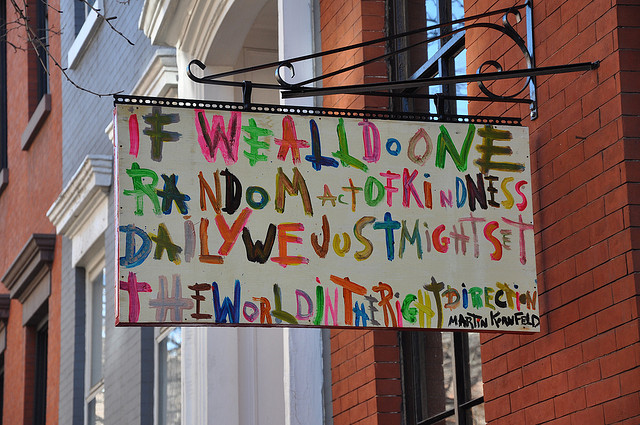 IF WE ALL DO ONE
RANDOM ACT OF KiNDNESS
DAILY WE JUST MiGHT SET
THE WORLD IN THE RiGHT DIRECTION
MARTIN KORNFELD